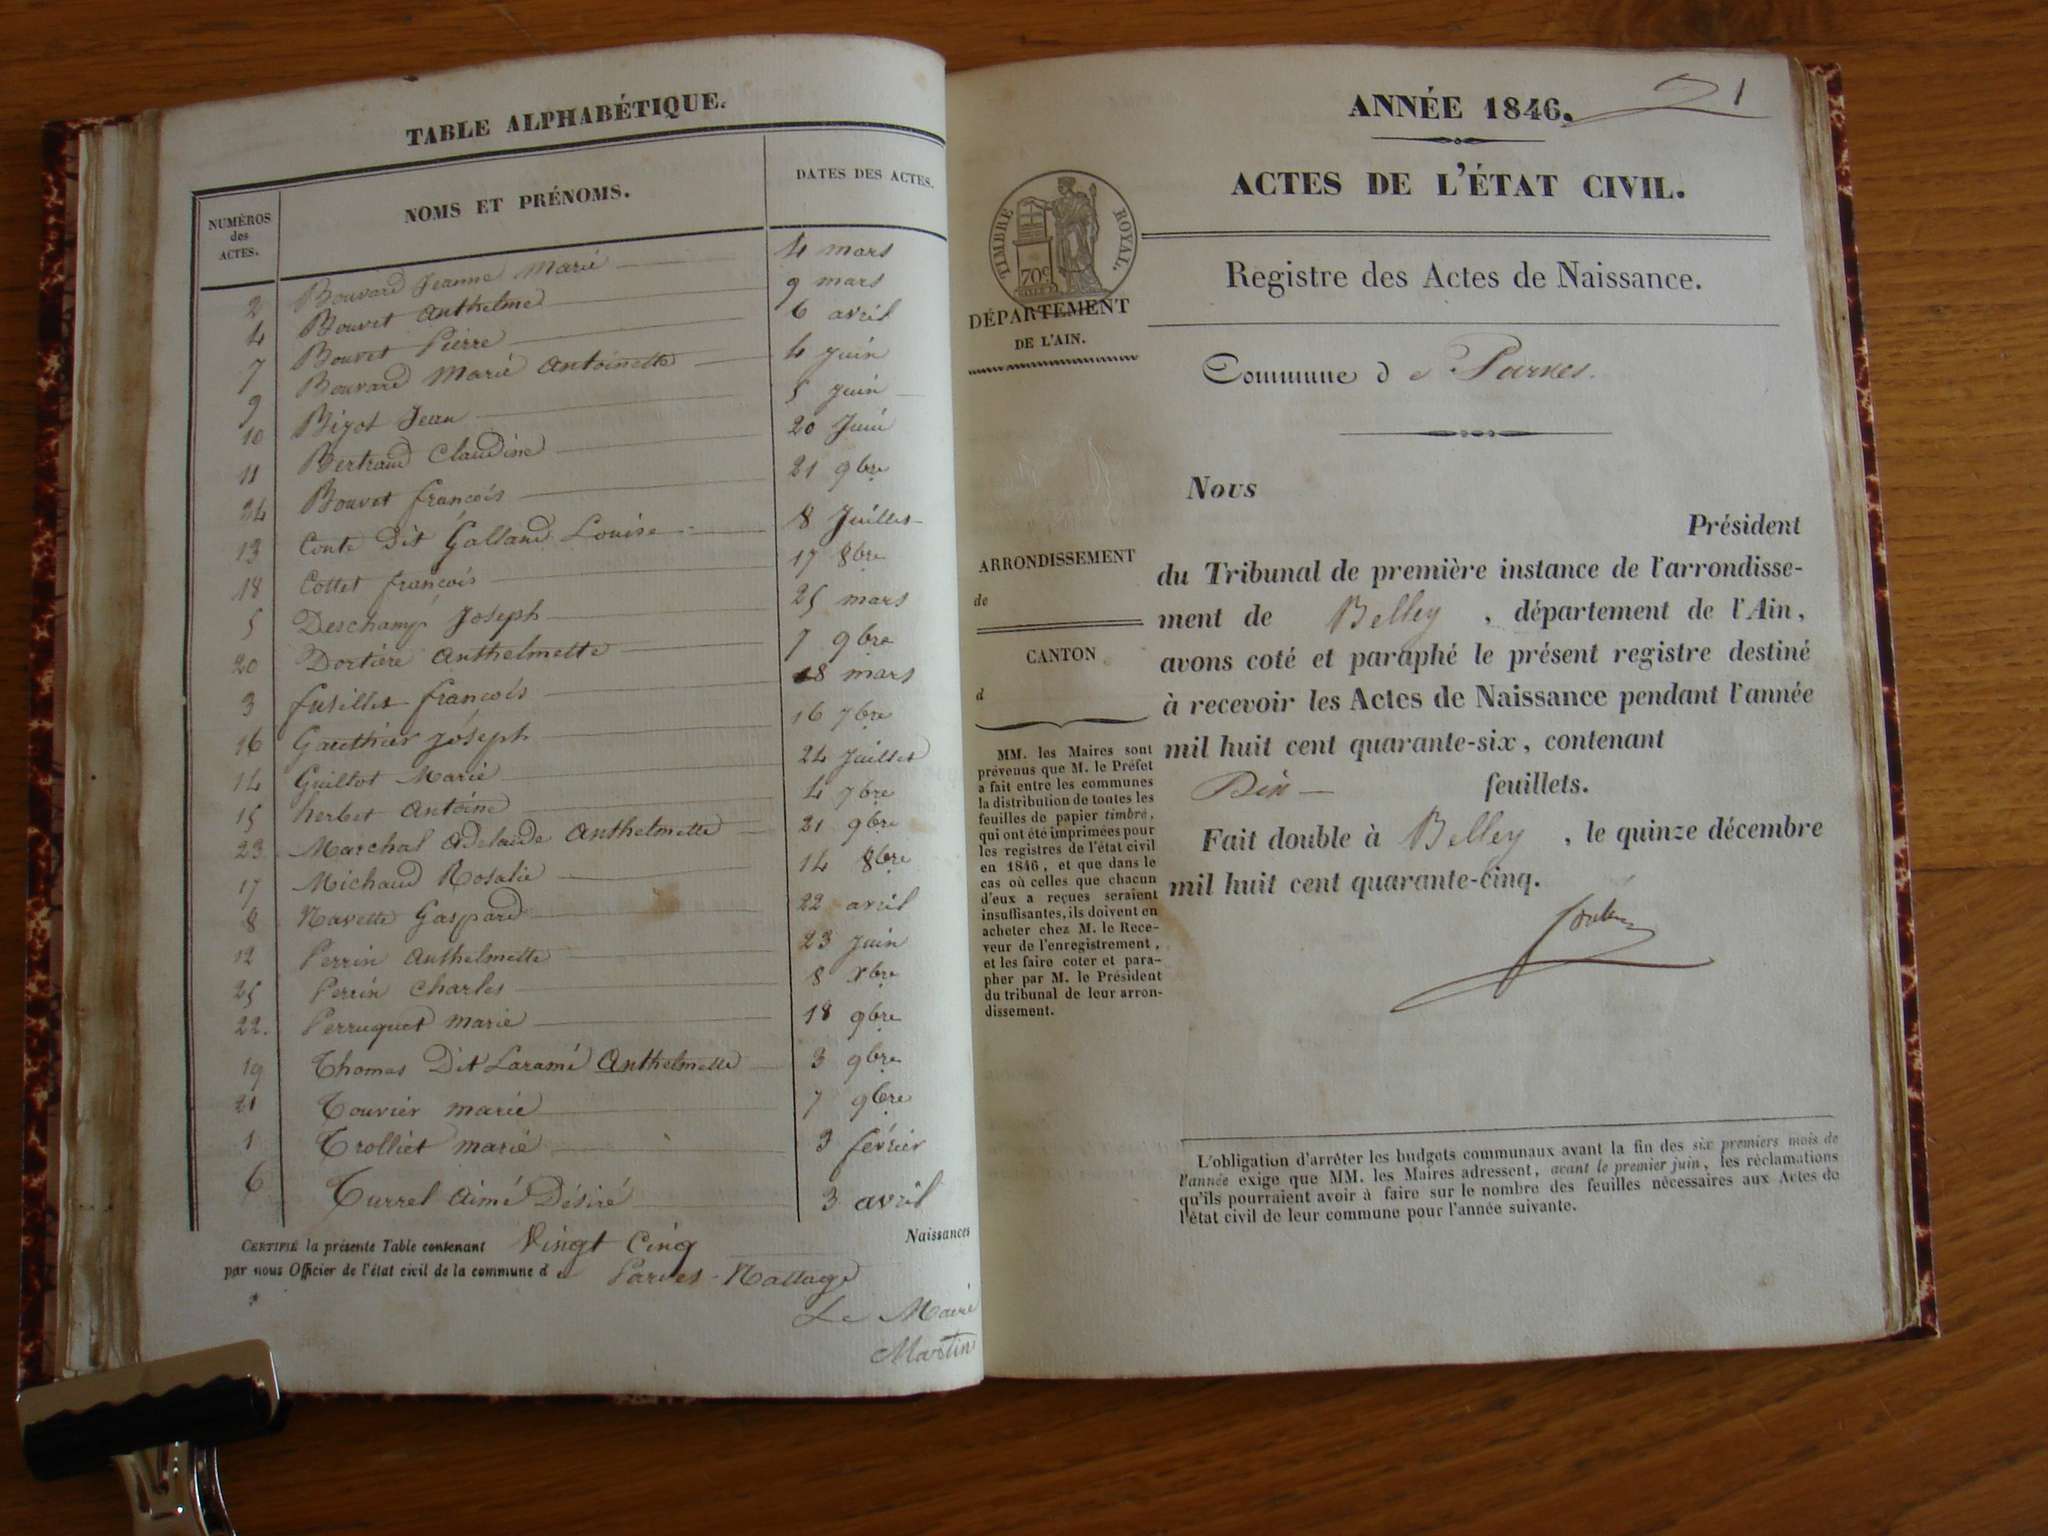 TABLE ALPHABÉTIQUE.
NUMÉROS des ACTES. NOMS ET PRÉNOMS. DATES DES ACTES.
2 Bouvard Jeanne Marie 4 mars
4 Bouvet Anthelme 9 mars
7 Bouvet Pierre 6 avril
9 Bouvard Marie Antoinette 4 juin
10 Bigot Jean 5 juin
11 Bertrand Claudine 20 Juin
24 Bouvet françois 21 9bre
13 Conte Dit Galland Louise 8 Juillet
18 Cottet françois 17 8bre
5 Deschamp Joseph 25 mars
20 Dortière Anthelmette 7 9bre
3 fusillet françois 8 mars
16 Gauthier joseph 16 7bre
14 Guillot Marie 24 Juillet
15 herbet Antoine 4 7bre
23 Marchal Adelaide Anthelmette 21 9bre
17 Michaud Rosalie 14 8bre
8 Navette Gaspard 22 avril
12 Perrin Anthelmette 23 juin
25 Perrin Charles 8 Xbre
22. Perruquet marie 18 9bre
19 Thomas Dit Laramé Anthelmette 3 9bre
21 Touvier marie 7 9bre
1 Trolliet marie 3 février
6 Turrel Aimé Désiré 3 avril
CERTIFIÉ la présente Table contenant Vingt Cinq Naissances
par nous Officier de l'état civil de la commune d e Parves-Nattage
Le Maire
Martin
21
ANNÉE 1846.
ACTES DE L'ÉTAT CIVIL.
TIMBRE ROYAL.
70c
DÉPARTEMENT
DE L'AIN.
Registre des Actes de Naissance.
Commune d e Parves.
Nous
Président
du Tribunal de première instance de l'arrondisse-
ment de Belley, département de l'Ain,
avons coté et paraphé le présent registre destiné
à recevoir les Actes de Naissance pendant l'année
mil huit cent quarante-six, contenant
Dix feuillets.
Fait double à Belley, le quinze décembre
mil huit cent quarante-cinq.
ARRONDISSEMENT
de
CANTON
d
MM. les Maires sont
prévenus que M. le Préfet
a fait entre les communes
la distribution de toutes les
feuilles de papier timbré,
qui ont été imprimées pour
les registres de l'état civil
en 1846, et que dans le
cas où celles que chacun
d'eux a reçues seraient
insuffisantes, ils doivent en
acheter chez M. le Rece-
veur de l'enregistrement,
et les faire coter et para-
pher par M. le Président
du tribunal de leur arron-
dissement.
L'obligation d'arrêter les budgets communaux avant la fin des six premiers mois de
l'année exige que MM. les Maires adressent, avant le premier juin, les réclamations
qu'ils pourraient avoir à faire sur le nombre des feuilles nécessaires aux Actes de
l'état civil de leur commune pour l'année suivante.